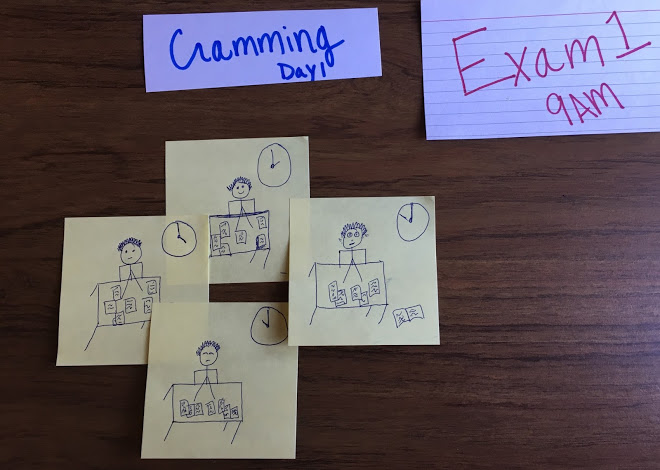 Cramming
Day 1
Exam 1
9AM